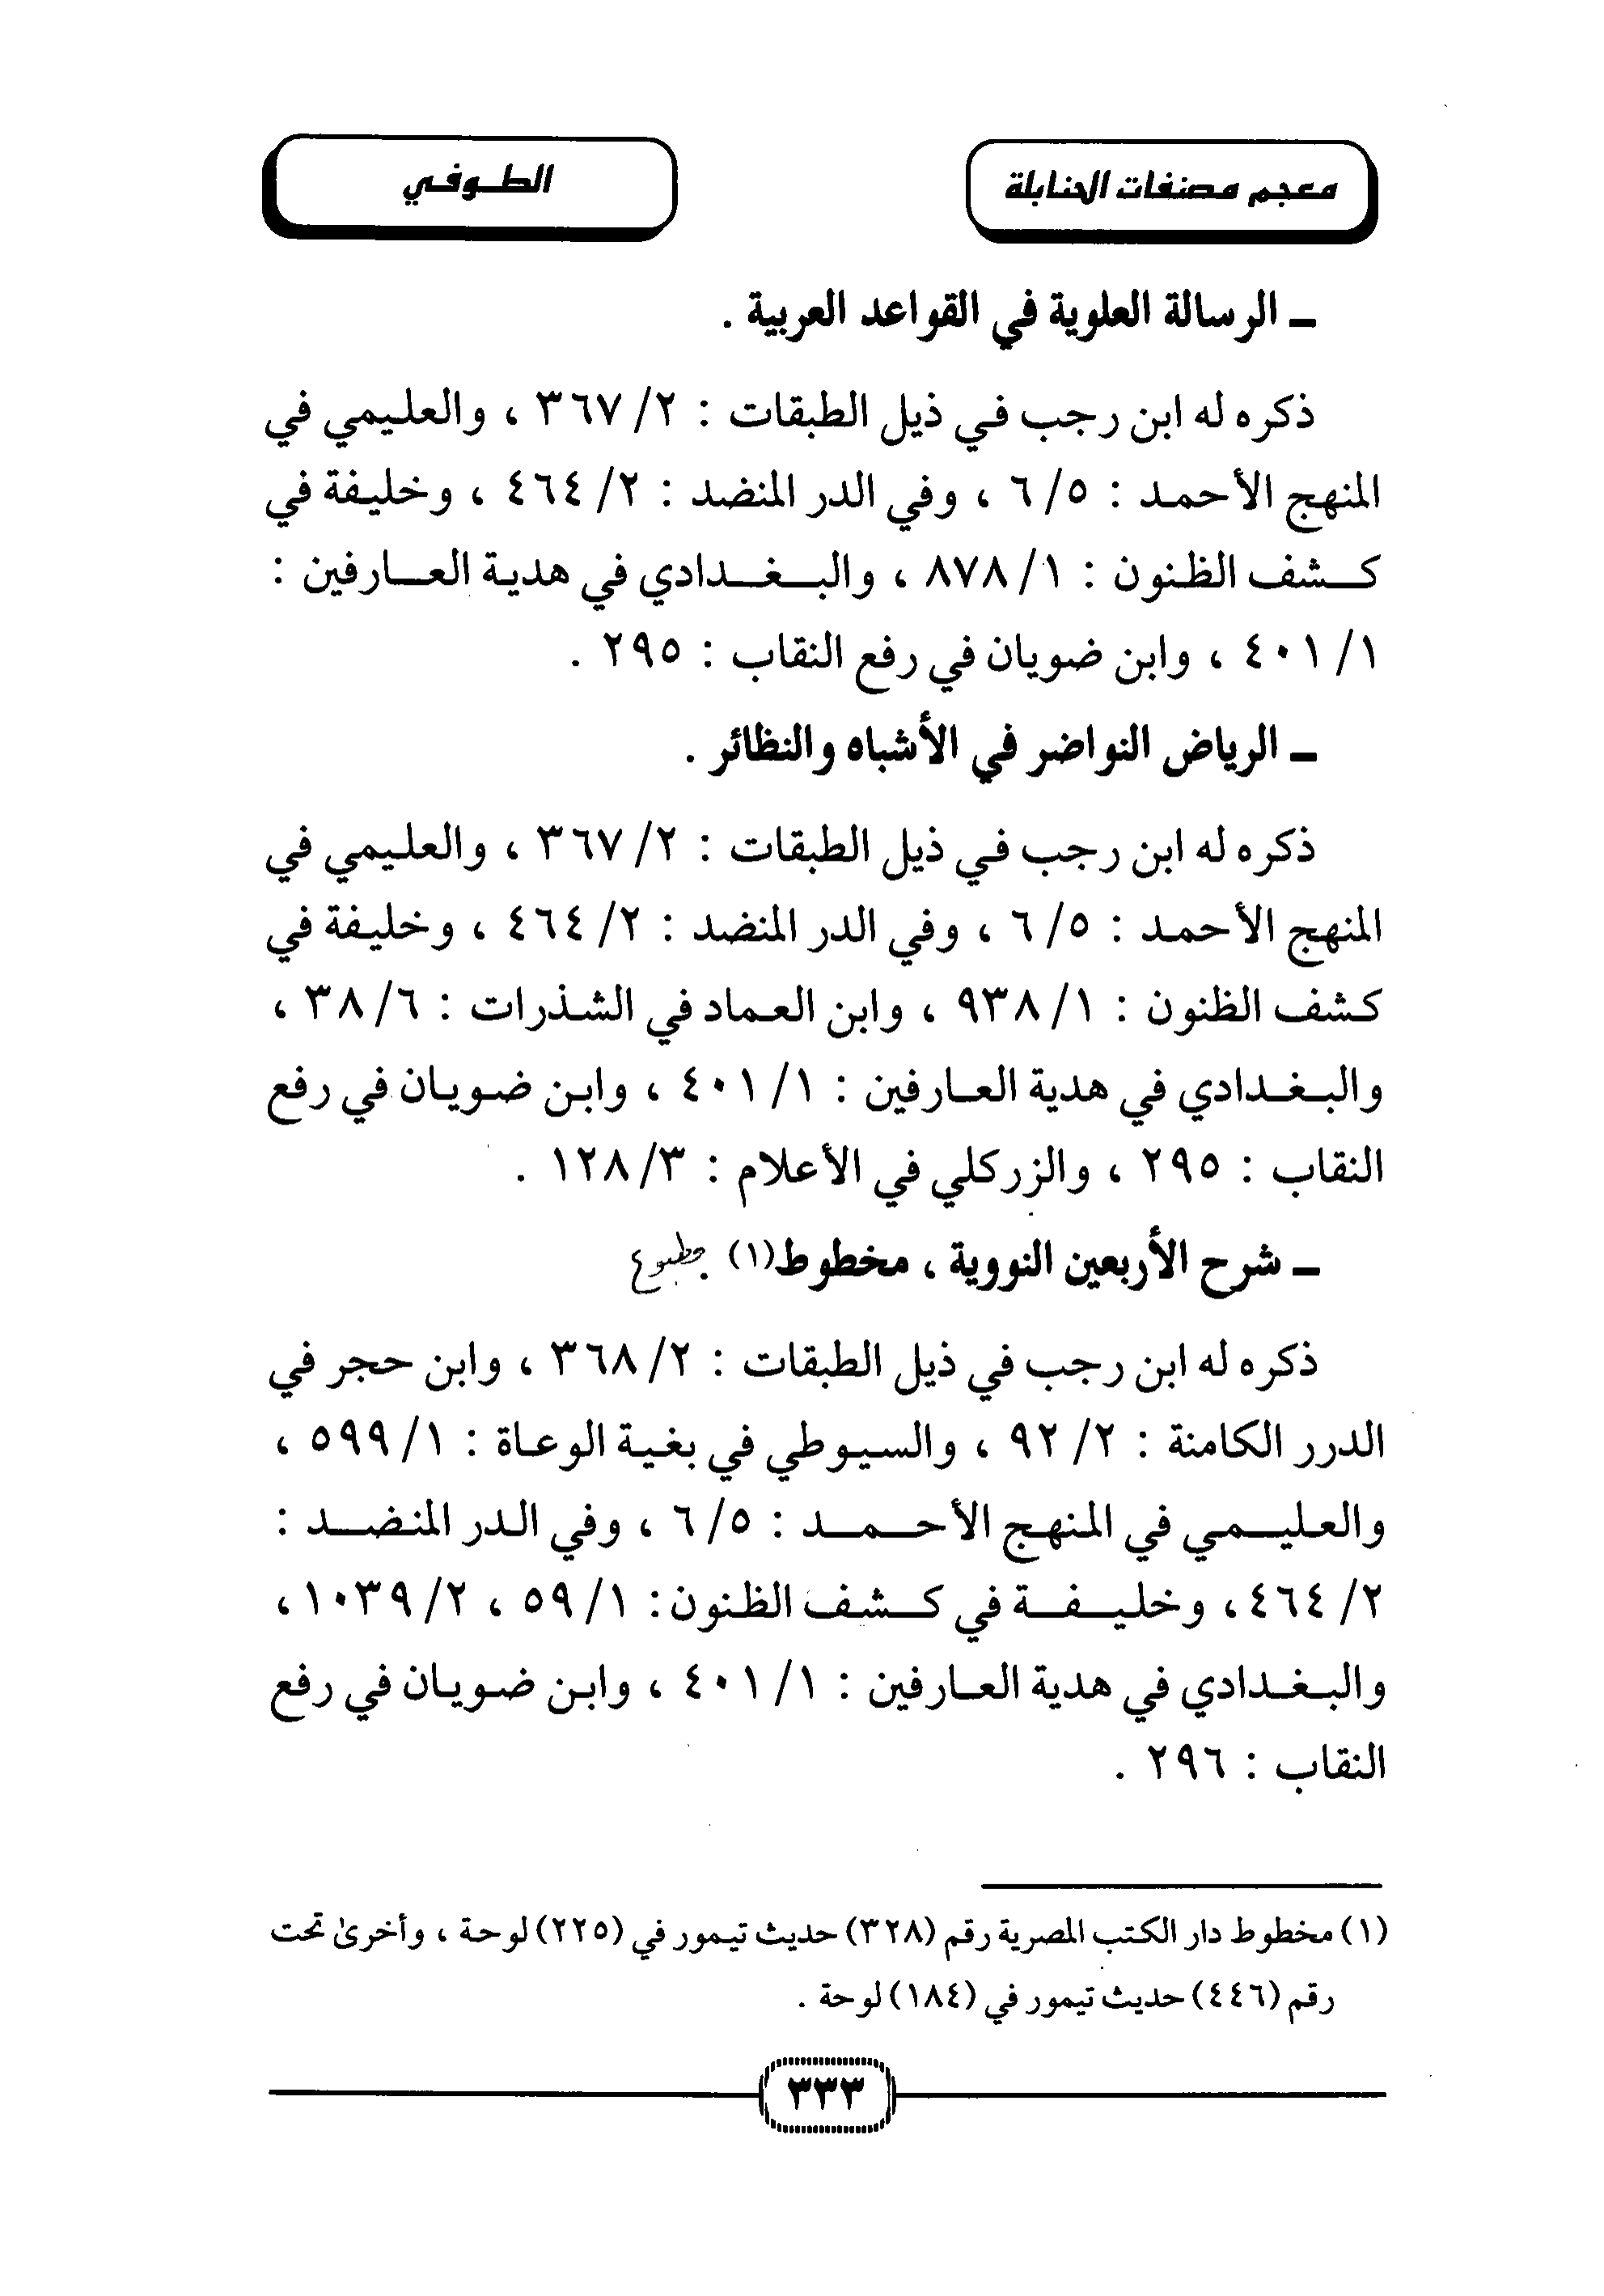 معجم مصنفات الحنابلة
الطوفي
ـ الرسالة العلوية في القواعد العربية .
ذكره له ابن رجب في ذيل الطبقات : ٢/ ٣٦٧ ، والعليمي في
المنهج الأحمد : ٥/ ٦ ، وفي الدر المنضد : ٢/ ٤٦٤ ، وخليفة في
كشف الظنون : ١/ ٨٧٨ ، والبغدادي في هدية العارفين :
١/ ٤٠١ ، وابن ضويان في رفع النقاب : ٢٩٥ .
ـ الرياض النواضر في الأشباه والنظائر .
ذكره له ابن رجب في ذيل الطبقات : ٢/ ٣٦٧ ، والعليمي في
المنهج الأحمد : ٥/ ٦ ، وفي الدر المنضد : ٢/ ٤٦٤ ، وخليفة في
كشف الظنون : ١/ ٩٣٨ ، وابن العماد في الشذرات : ٦/ ٣٨ ،
والبغدادي في هدية العارفين : ١/ ٤٠١ ، وابن ضويان في رفع
النقاب : ٢٩٥ ، والزركلي في الأعلام : ٣/ ١٢٨ .
ـ شرح الأربعين النووية ، مخطوط(١) . مطبوع
ذكره له ابن رجب في ذيل الطبقات : ٢/ ٣٦٨ ، وابن حجر في
الدرر الكامنة : ٢/ ٩٢ ، والسيوطي في بغية الوعاة : ١/ ٥٩٩ ،
والعليمي في المنهج الأحمد : ٥/ ٦ ، وفي الدر المنضد :
٢/ ٤٦٤ ، وخليفة في كشف الظنون : ١/ ٥٩ ، ٢/ ١٠٣٩ ،
والبغدادي في هدية العارفين : ١/ ٤٠١ ، وابن ضويان في رفع
النقاب : ٢٩٦ .
(١) مخطوط دار الكتب المصرية رقم (٣٢٨) حديث تيمور في (٢٢٥) لوحة ، وأخرىٰ تحت
رقم (٤٤٦) حديث تيمور في (١٨٤) لوحة .
٣٣٣